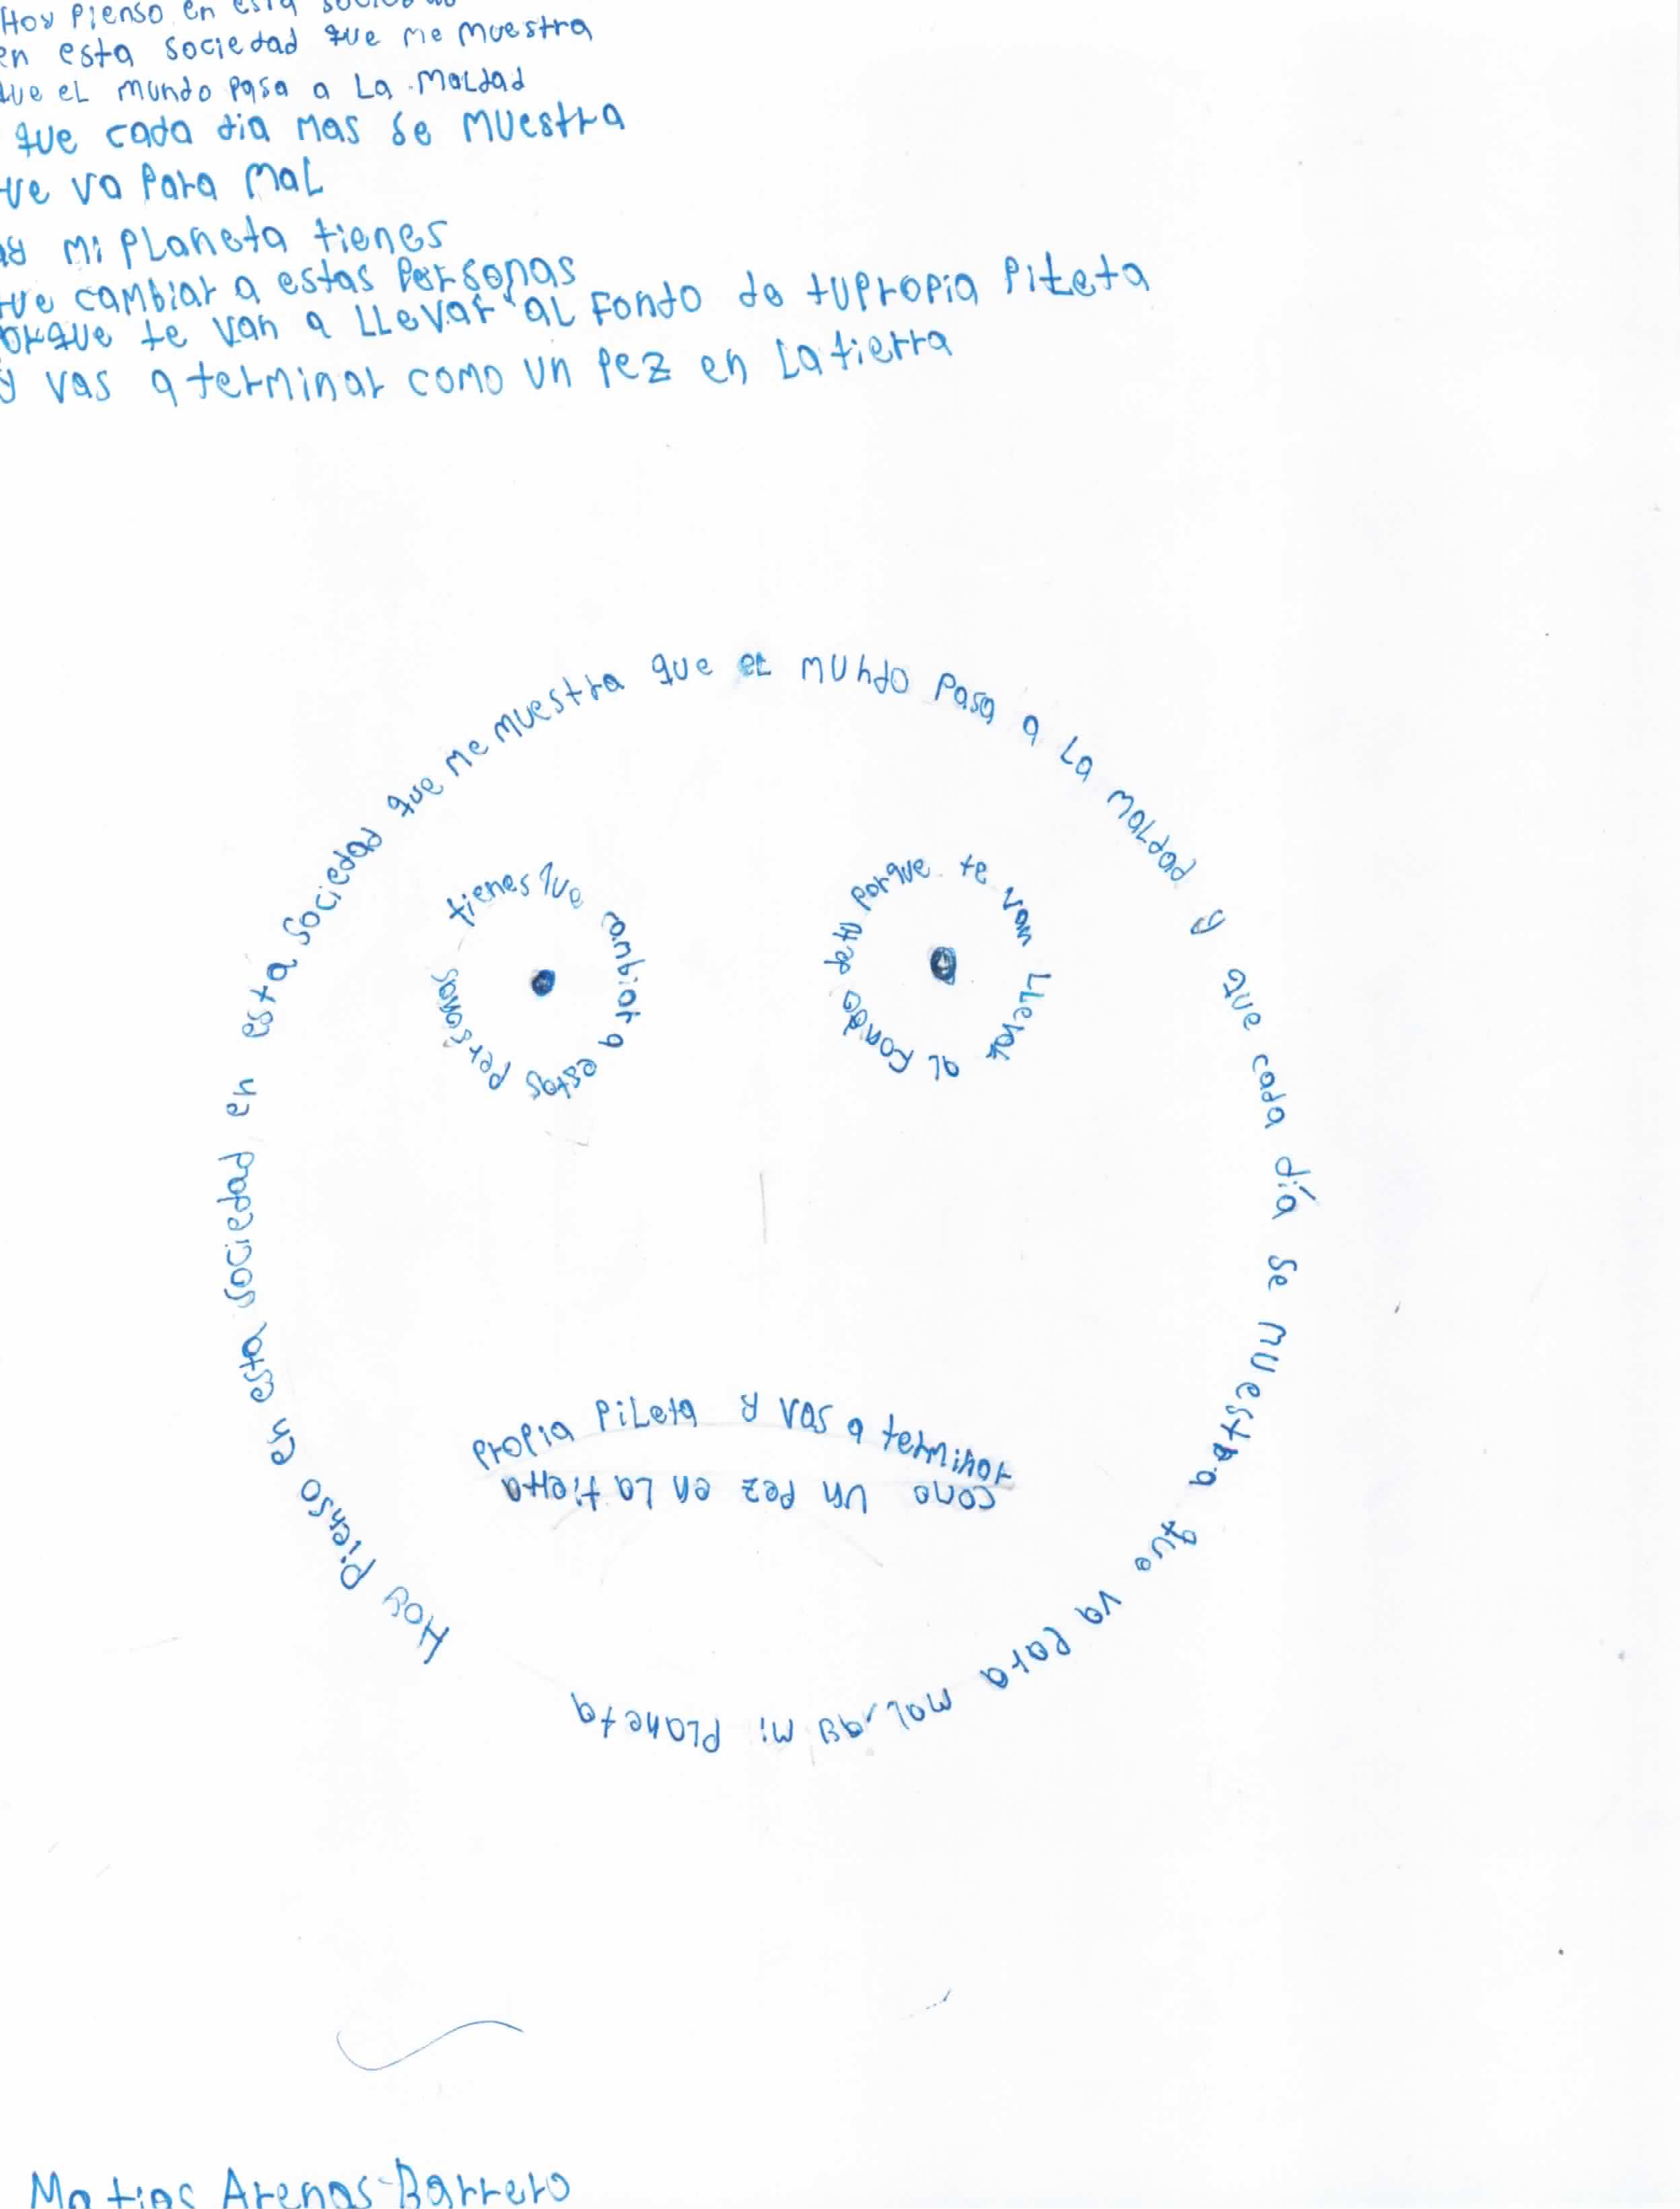 Hoy Pienso en esta sociedad
en esta sociedad que me muestra
que el mundo pasa a la maldad
que cada dia mas se muestra
que va para mal
ay mi planeta tienes
que cambiar a estas personas
porque te van a llevar al fondo de tu propia pileta
y vas a terminar como un pez en la tierra
Hoy Pienso en esta sociedad en esta sociedad que me muestra que el mundo pasa a la maldad y que cada día se muestra que va para mal, ay mi planeta
tienes que cambiar a estas personas
porque te van llevar al fondo de tu
propia pileta y vas a terminar
como un pez en la tierra
Matias Arenas Barrero